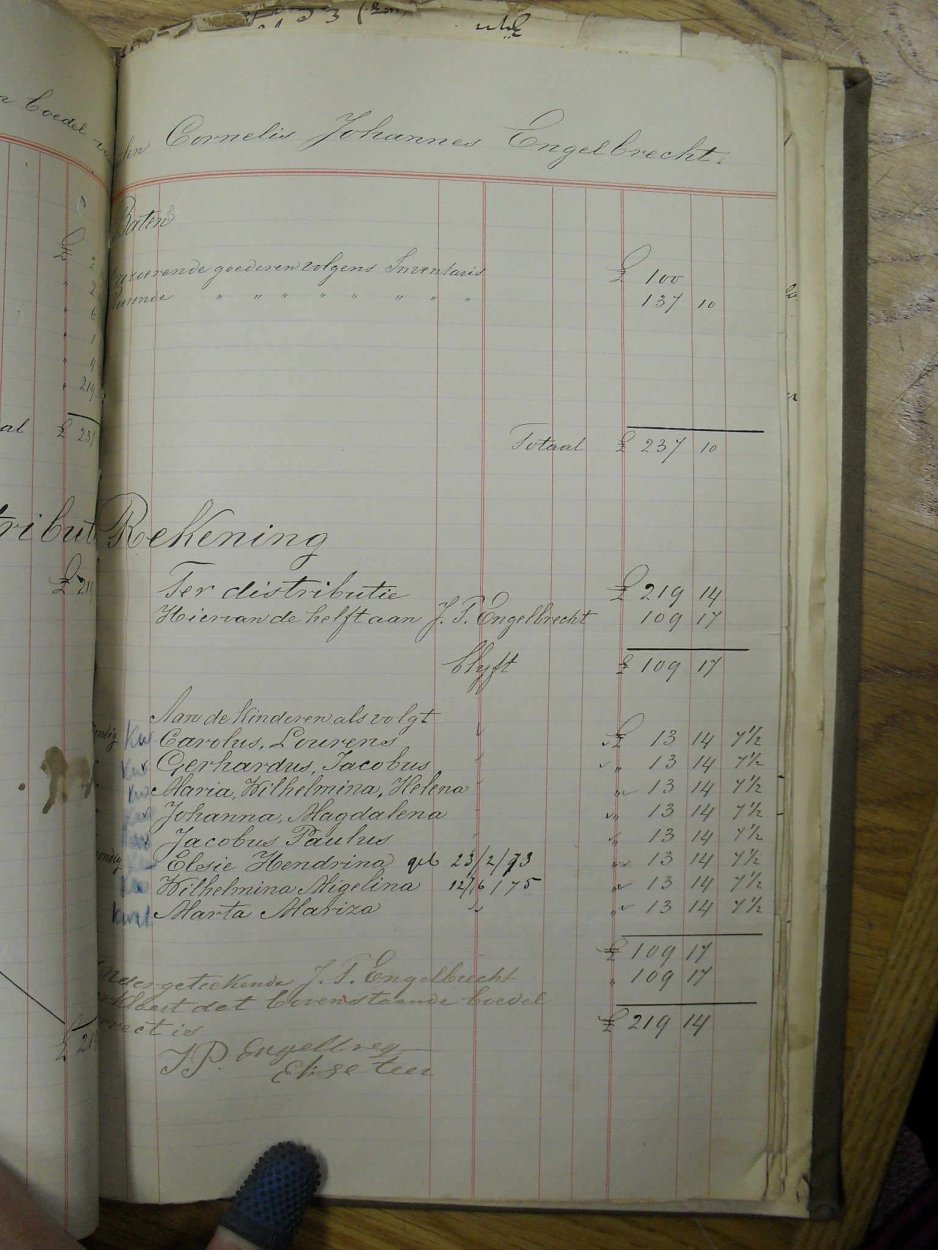 Cornelis Johannes Engelbrecht.
Baten
goederen volgens Inventaris £ 100
" " " " " " " " 137 10
Totaal £ 237 10
Rekening
Ter distributie £ 219 14
Hiervan de helft aan J. P. Engelbrecht 109 17
blyft £ 109 17
Aan de Kinderen als volgt
Carolus, Lourens £ 13 14 7½
Gerhardus, Jacobus " 13 14 7½
Maria, Wilhelmina, Helena " 13 14 7½
Johanna, Magdalena " 13 14 7½
Jacobus Paulus " 13 14 7½
Elsie Hendrina geb 23/2/73 " 13 14 7½
Wilhelmina Migelina 12/6/75 " 13 14 7½
Marta Mariza " 13 14 7½
£ 109 17
dergeteekende J. P. Engelbrecht " 109 17
dat bovenstaande boedel
rect is £ 219 14
J P. Engelbreg